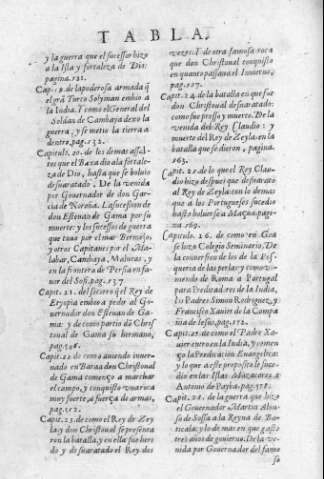 TABLA.
y la guerra que el sucessor hizo
a la Isla y fortaleza de Dio:
pagina.121.
Cap. 9. de la poderosa armada q̃
el grã Turco Solyman embio a
la India. Y como el General del
Soldan de Cambaya dexo la
guerra, y se metio la tierra a
dentro, pag. 132.
Capitulo. 20. de los demas assal-
tos que el Baxa dio a la fortale-
za de Dio, hasta que se boluio
desuaratado. De la venida
por Gouernador de don Gar-
cia de Noroña. La sucession de
don Esteuan de Gama por su
muerte: y los sucessos de guerra
que tuuo por el mar Bermejo,
y otros Capitanes por el Ma-
labar, Cambaya, Malucas, y
en la frontera de Persia en fa-
uor del Sofi. pag. 137
Capit. 21. del socorro q̃ el Rey de
Etyopia embio a pedir al Go-
uernador don Esteuan de Ga-
ma: y de como partio dõ Chris
toual de Gama su hermano,
pag.
Capit. 22. de como auiendo inuer-
nado en Baroa don Christoual
de Gama començo a marchar
el campo, y conquisto vna rica
muy fuerte, a fuerça de armas,
pag.
Capit. 23. de como el Rey de Zey
la y don Christoual se presenta
ron la batalla, y en ella fue heri
do y desuaratado el Rey dos
vezes. Y de otra famosa roca
que don Christoual conquisto
en quanto passaua el Inuierno,
pag.
Capit. 24. de la batalla en que fue
don Christoual desuaratado:
como fue preso y muerto. De la
venida del Rey Claudio: y
muerte del Rey de Zeyla en la
batalla que se dieron, pagina.
163.
Capit. 25. de lo que el Rey Clau
dio hizo despues que desuarato
al Rey de Zeyla con lo demas
que a los Portugueses sucedio
hasta boluerse a Maçua. pagi-
na
Capitulo. 26. de como en Goa
se hizo Colegio Seminario. De
la conuersion de los de la Pes-
queria de las perlas: y como vi-
niendo de Roma a Portugal
para Predicadores de la India,
los Padres Simon Rodriguez, y
Francisco Xauier de la Compa
ñia de Iesus, pag. 172.
Capit. de como el Padre Xa-
uier entro en la India, y comen
ço la Predicacion Euangelica:
y lo que a este proposito le suce-
dio en las Islas Maçacares a
Antonio de Payba. pag. 178.
Capit. de la guerra que hizo
el Gouernador Martin Alon-
so de Sossa a la Reyna de Ba-
ticala: y lo de mas en que gasto
tres años de gouierno. De la ve-
nida por Gouernador del famo
so